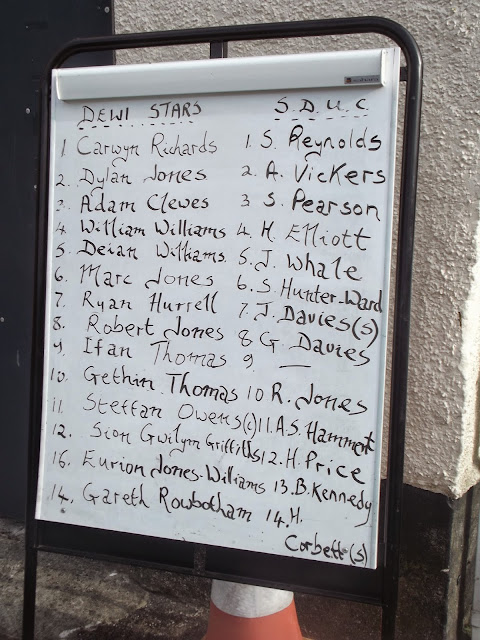 DEWI STARS S.D.U.C
1 Carwyn Richards 1. S. Reynolds
2. Dylan Jones 2. A. Vickers
3. Adam Clewes 3 S. Pearson
4. William Williams 4. H. Elliott
5. Deian Williams. 5. J. Whale
6. Marc Jones 6. S. Hunter-Ward
7. Ryan Hurrell 7. J. Davies(s)
8. Robert Jones 8 G. Davies
9. Ifan Thomas 9 —
10. Gethin Thomas 10 R. Jones
11. Steffan Owens(c) 11. A.S. Hammett
12. Sion Gwilym Griffiths 12. H. Price
16. Eurion Jones-Williams 13. B. Kennedy
14. Gareth Rowbotham 14. H.
Corbett(s)